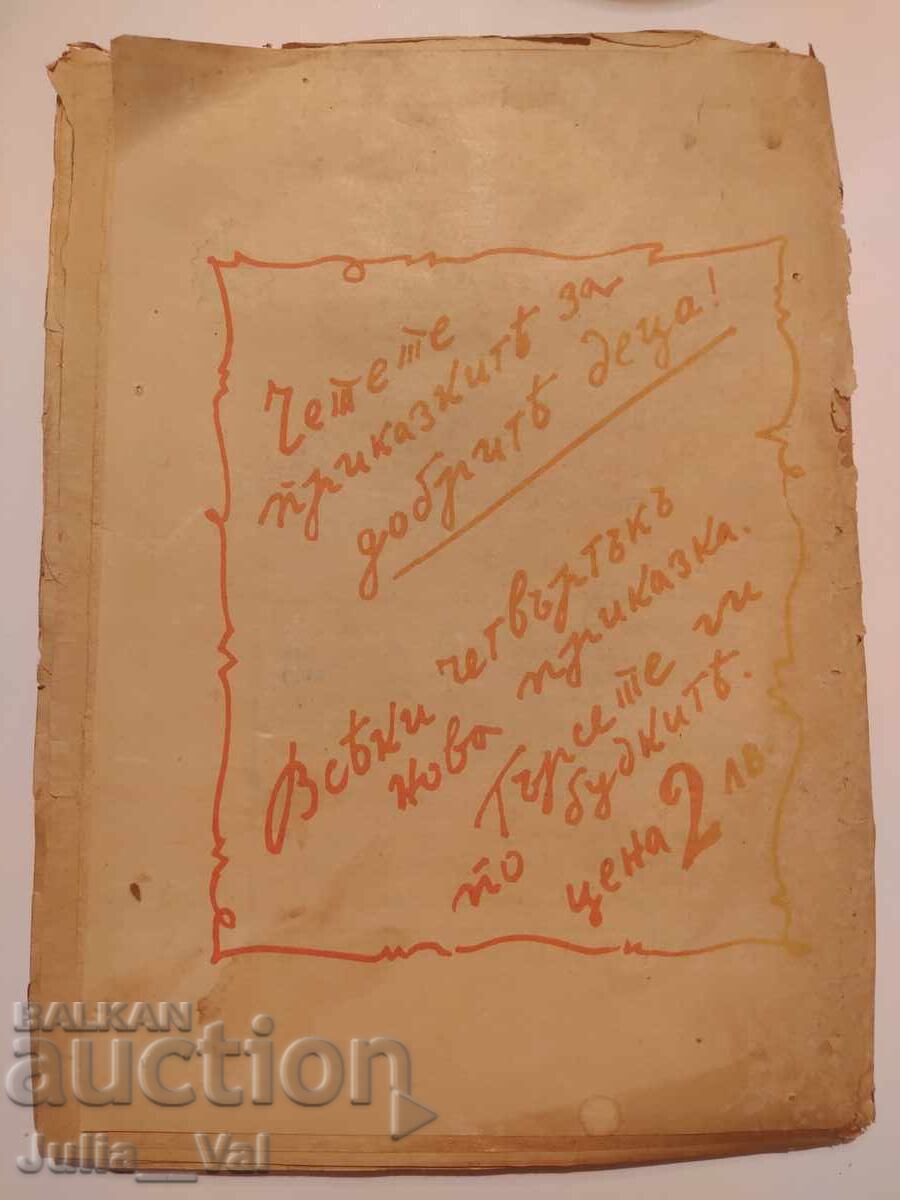 Четете
приказкитѣ за
добритѣ деца!
Всѣки четвъртъкъ
нова приказка.
Търсете ги
по будкитѣ.
цена 2 лв.
BALKAN
auction
Julia__Val